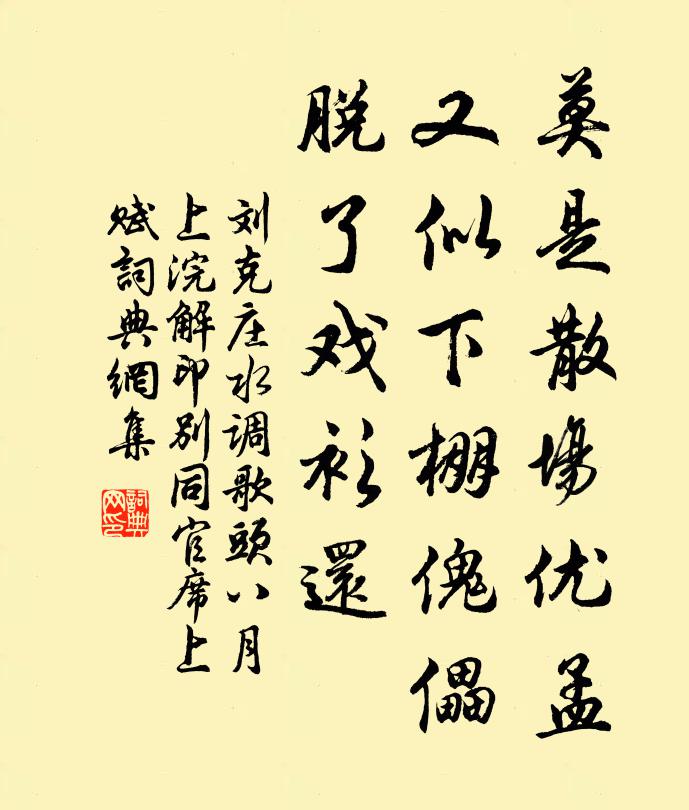 莫是散場优孟
又似下棚傀儡
脱了戏衫還
刘克庄水调歌頭八月
上浣解印别同官席上
赋詞典網集
詞典
网印